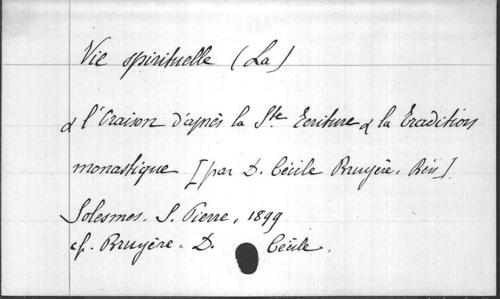 Vie spirituelle (La)
& l'Oraison d'après la Ste Ecriture & la Tradition
monastique [par D. Cécile Bruyère. Bén].
Solesmes. S. Pierre, 1899
cf. Bruyère. D. Cécile.